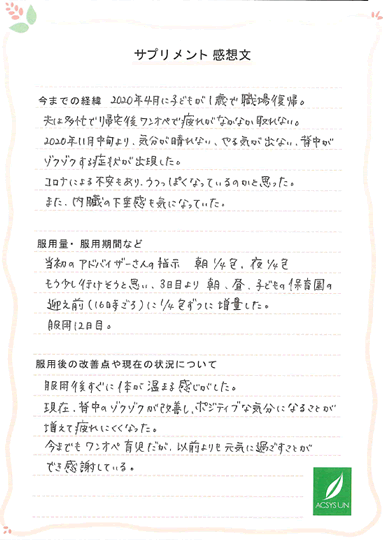 サプリメント 感想文
今までの経緯 2020年4月に子どもが1歳で職場復帰。
夫は多忙で帰宅後ワンオペで疲れがなかなか取れない。
2020年11月中旬より、気分が晴れない、やる気が出ない、背中が
ゾクゾクする症状が出現した。
コロナによる不安もあり、うつっぽくなっているのかと思った。
また、内臓の下垂感も気になっていた。
服用量・服用期間など
当初のアドバイザーさんの指示 朝1/4包、夜1/4包
もう少し付けそうと思い、3日目より 朝、昼、子どもの保育園の
迎え前(16時ごろ)に1/4包ずつに増量した。
服用12日目。
服用後の改善点や現在の状況について
服用後すぐに体が温まる感じがした。
現在、背中のゾクゾクが改善し、ポジティブな気分になることが
増えて疲れにくくなった。
今までもワンオペ育児だが、以前よりも元気に過ごすことが
でき感謝している。
ACSYS UN